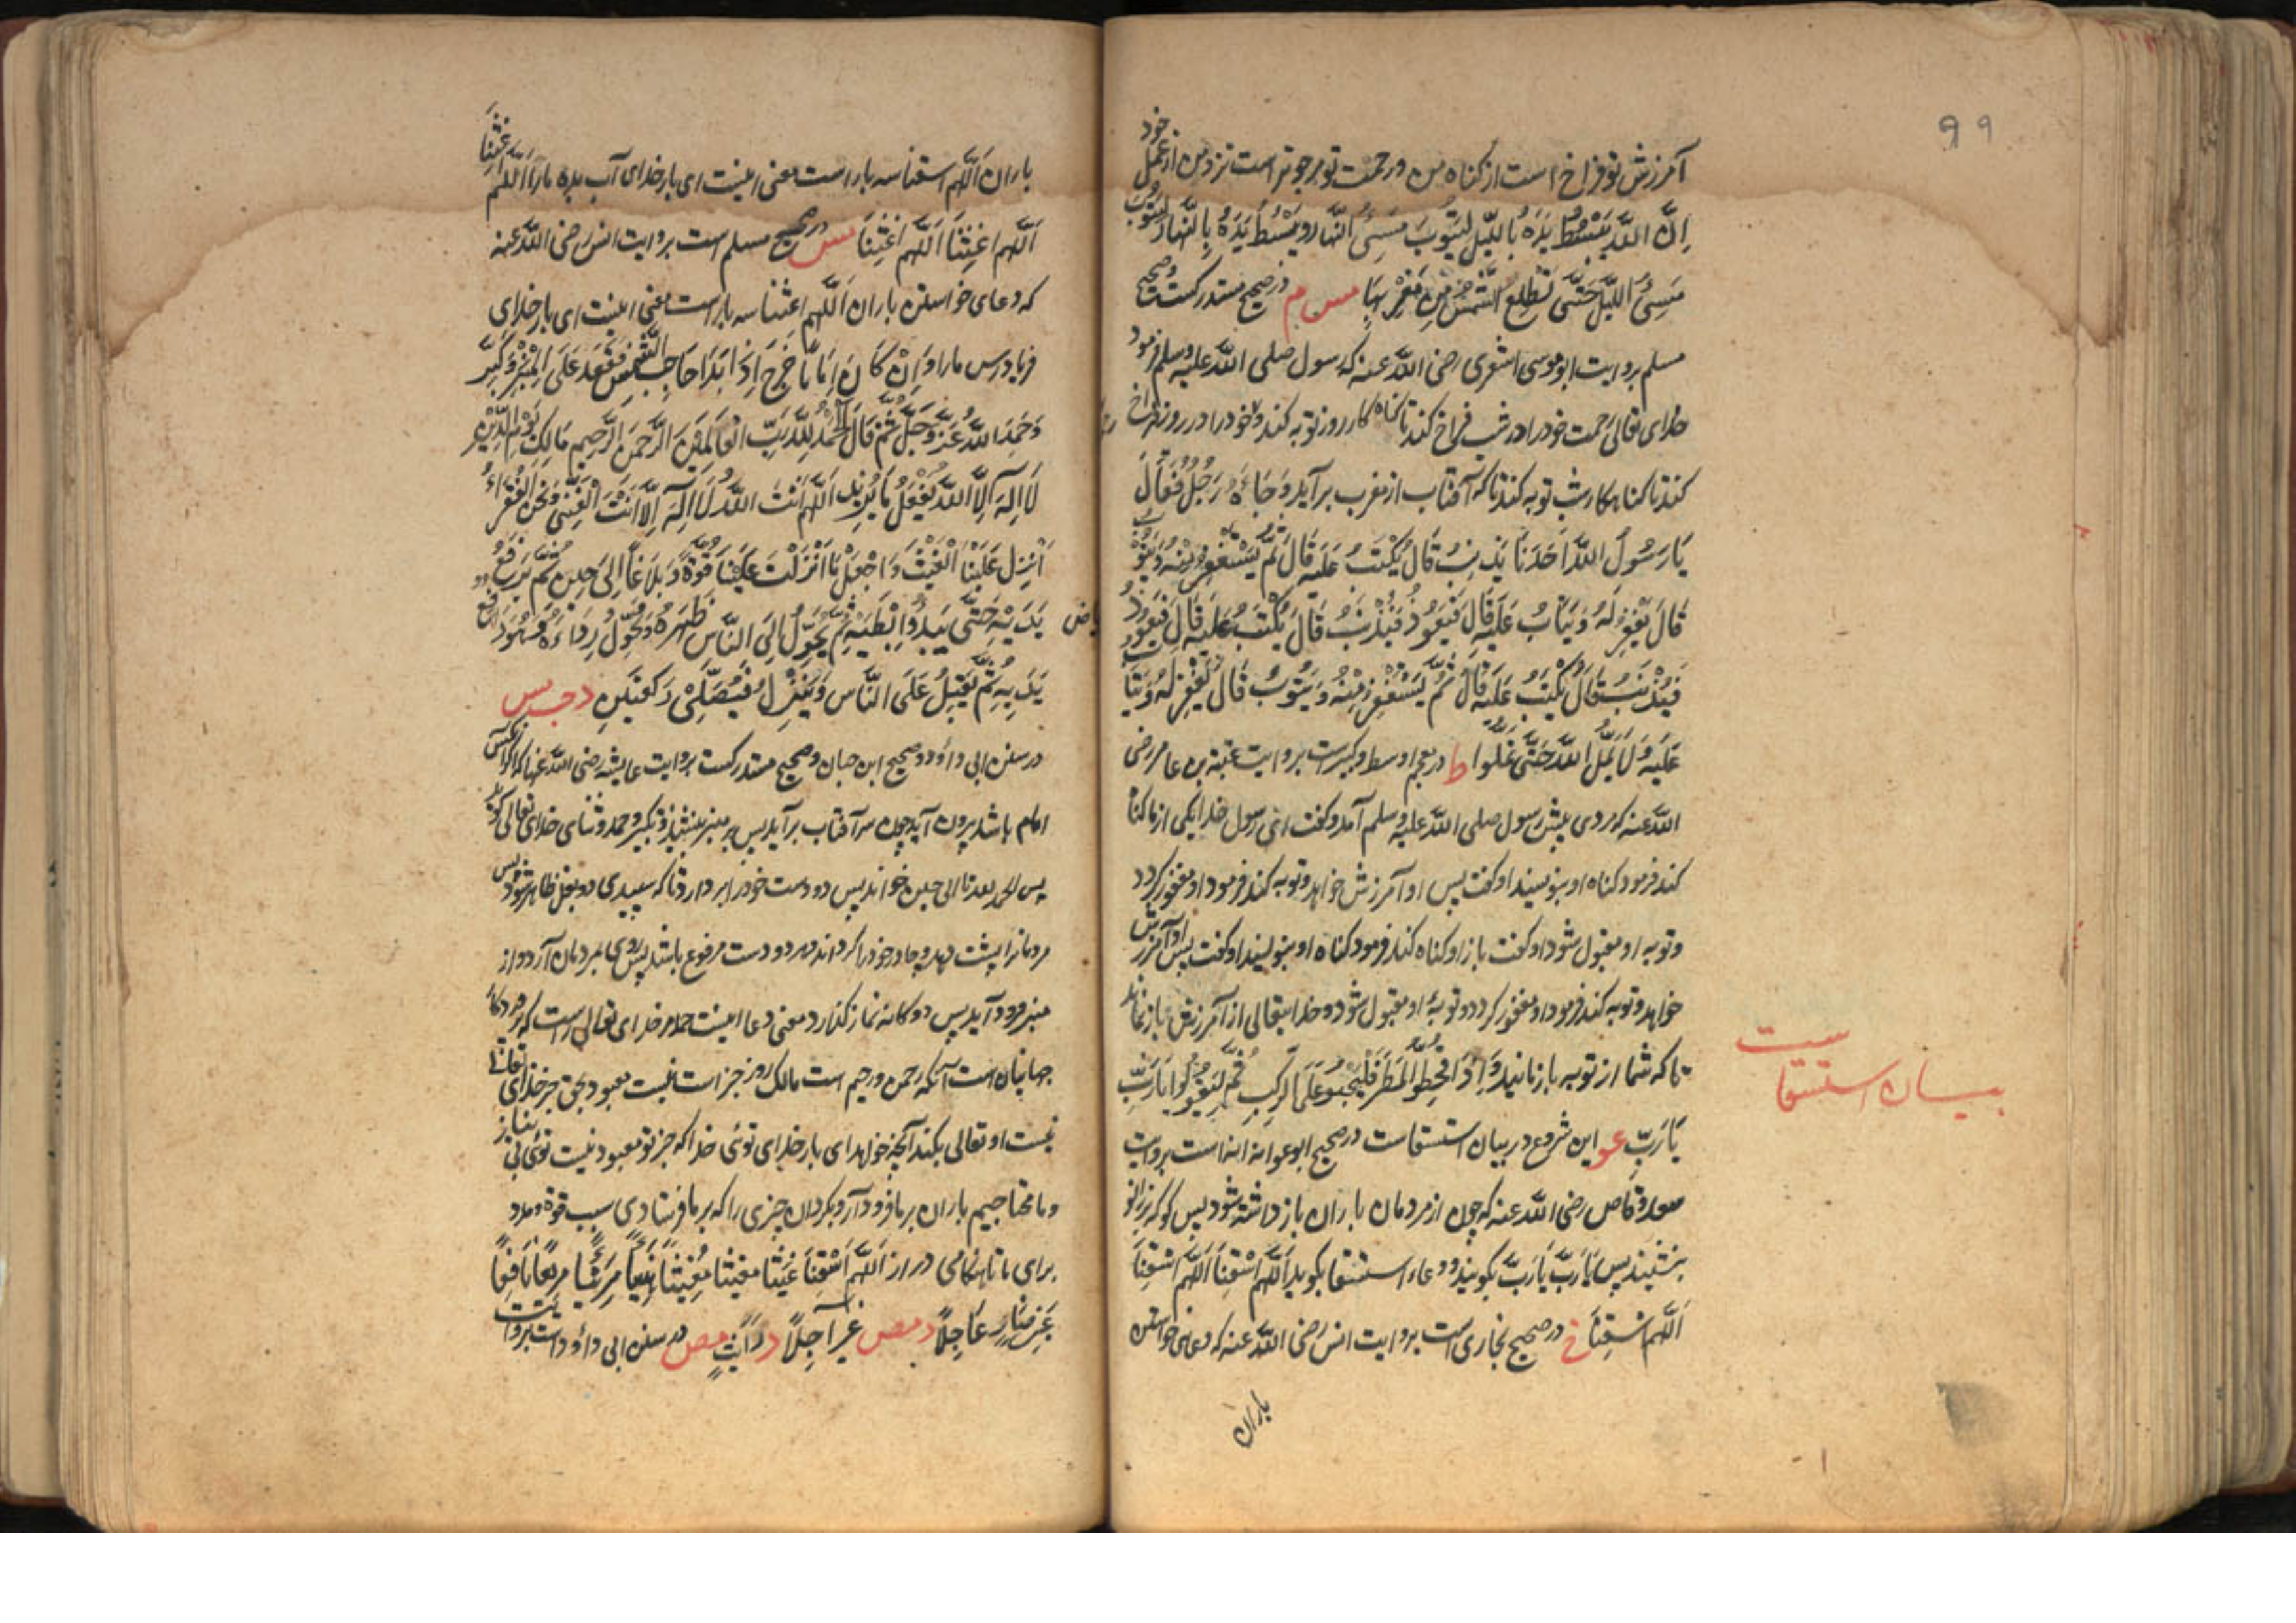 ۹۹
آمرزش تو فراخ است از گناه من و رحمت تو مرجوتر است نزد من از عمل خود
اِنَّ اللَّهَ يَبْسُطُ يَدَهُ بِاللَّيْلِ لِيَتُوبَ مُسِئُ النَّهَارِ وَيَبْسُطُ يَدَهُ بِالنَّهَارِ لِيَتُوبَ
مُسِئُ اللَّيْلِ حَتَّى تَطْلُعَ الشَّمْسُ مِنْ مَغْرِبِهَا مس م در صحیح مستدرکست و صحیح
مسلم بروایت ابوموسی اشعری رضی اللّه عنه که رسول صلی اللّه علیه وسلم فرمود
خدای تعالی رحمت خود را در شب فراخ کند تا گناه کار روز توبه کند و خود را در روز فراخ
کند تا گناهکار شب توبه کند تا که آفتاب از مغرب برآید وَجَاءَهُ رَجُلٌ فَقَالَ
يَا رَسُولَ اللَّهِ اَحَدُنَا يُذْنِبُ قَالَ يُكْتَبُ عَلَيْهِ قَالَ ثُمَّ يَسْتَغْفِرُ مِنْهُ وَيَتُوبُ
قَالَ يُغْفَرُ لَهُ وَيُتَابُ عَلَيْهِ قَالَ فَيَعُودُ فَيُذْنِبُ قَالَ يُكْتَبُ عَلَيْهِ قَالَ فَيَعُودُ
فَيُذْنِبُ قَالَ يُكْتَبُ عَلَيْهِ قَالَ ثُمَّ يَسْتَغْفِرُ مِنْهُ وَيَتُوبُ قَالَ يُغْفَرُ لَهُ وَيُتَابُ
عَلَيْهِ وَلَا يَمَلُّ اللَّهُ حَتَّى تَمَلُّوا ط در معجم اوسط و کبیرست بروایت عقبة بن عامر رضی
اللّه عنه که مردی پیش رسول صلی اللّه علیه وسلم آمد و گفت ای رسول خدا یکی از ما گناه
کند فرمود گناه او بنویسند او گفت پس او آمرزش خواهد و توبه کند فرمود او مغفور گردد
و توبه او مقبول شود او گفت باز او گناه کند فرمود گناه او بنویسند او گفت پس او آمرزش
خواهد و توبه کند فرمود او مغفور گردد و توبهٔ او مقبول شود و خدایتعالی از آمرزش باز نماند
تا که شما از توبه باز نمانید وَاِذَا قُحِطُوا الْمَطَرَ فَلْيَجْثُوا عَلَى الرُّكَبِ ثُمَّ لْيَقُولُوا يَا رَبِّ
يَا رَبِّ عو این شروع در بیان استسقاست در صحیح ابوعوانه است بروایت
سعد وقاص رضی اللّه عنه که چون از مردمان باران باز داشته شود پس گو که بزانو
بنشینند پس يَا رَبِّ يَا رَبِّ بگویند و دعاء استسقا بگوید اَللَّهُمَّ اسْقِنَا اَللَّهُمَّ اسْقِنَا
اَللَّهُمَّ اسْقِنَا خ در صحیح بخاری است بروایت انس رضی اللّه عنه که دعای خواستن
باران
بیسان استسقا ست
باران اَللَّهُمَّ اسقنا سه بار است معنی اینست ای بار خدای آب بده ما را اَللَّهُمَّ اَغِثْنَا
اَللَّهُمَّ اَغِثْنَا اَللَّهُمَّ اَغِثْنَا مس در صحیح مسلم است بروایت انس رضی اللّه عنه
که دعای خواستن باران اَللَّهُمَّ اغثنا سه بار است معنی اینست ای بار خدای
فریادرس ما را وَاِنْ كَانَ اِمَامًا خَرَجَ اِذَا بَدَا حَاجِبُ الشَّمْسِ فَقَعَدَ عَلَى الْمِنْبَرِ وَكَبَّرَ
وَحَمِدَ اللَّهَ عَزَّ وَجَلَّ ثُمَّ قَالَ الْحَمْدُ لِلَّهِ رَبِّ الْعَالَمِينَ الرَّحْمَنِ الرَّحِيمِ مَالِكِ يَوْمِ الدِّينِ
لَا اِلَهَ اِلَّا اللَّهُ يَفْعَلُ مَا يُرِيدُ اَللَّهُمَّ اَنْتَ اللَّهُ لَا اِلَهَ اِلَّا اَنْتَ الْغَنِيُّ وَنَحْنُ الْفُقَرَاءُ
اَنْزِلْ عَلَيْنَا الْغَيْثَ وَاجْعَلْ مَا اَنْزَلْتَ عَلَيْنَا قُوَّةً وَبَلَاغًا اِلَى حِينٍ ثُمَّ يَرْفَعُ
يَدَيْهِ حَتَّى يَبْدُوَ اِبْطَيْهِ ثُمَّ يُحَوِّلُ اِلَى النَّاسِ ظَهْرَهُ وَيُحَوِّلُ رِدَاءَهُ وَهُوَ رَافِعٌ
يَدَيْهِ ثُمَّ يُقْبِلُ عَلَى النَّاسِ وَيَنْزِلُ فَيُصَلِّي رَكْعَتَيْنِ د حب مس
در سنن ابی داؤد و صحیح ابن حبان و صحیح مستدرکست بروایت عایشه رضی اللّه عنها که اگر
امام باشد بیرون آید چون سر آفتاب برآید پس بر منبر بنشیند و تکبیر و حمد و ثنای خدای تعالی گوید
پس الحمد للّه تا الی حین خواند پس دو دست خود را بردارد تا که سپیدی دو بغل ظاهر شود پس
مردمانرا پشت دهد و چادر خود را گرداند و هر دو دست مرفوع باشد پس روی بمردمان آرد و از
منبر فرود آید پس دوگانه نماز گذارد معنی دعا اینست حمد مر خدای تعالی راست که
جهانیان است آنکه رحمن و رحیم است مالک روز جزاست نیست معبود بحق جز خدای تعالی
نیست او تعالی بکند آنچه خواهد ای بار خدای توئی خدا که جز تو معبود نیست توئی بی نیاز
و ما محتاجیم باران بر ما فرود آر و بگردان چیزی را که بر ما فرستادی سبب قوة و مدد
برای ما تا هنگامی دراز اَللَّهُمَّ اسْقِنَا غَيْثًا مُغِيثًا مَرِيئًا مَرِيعًا نَافِعًا
غَيْرَ ضَارٍّ عَاجِلًا د مص غَيْرَ آجِلًا د رَائِثٍ مص در سنن ابی داؤد است بروایت